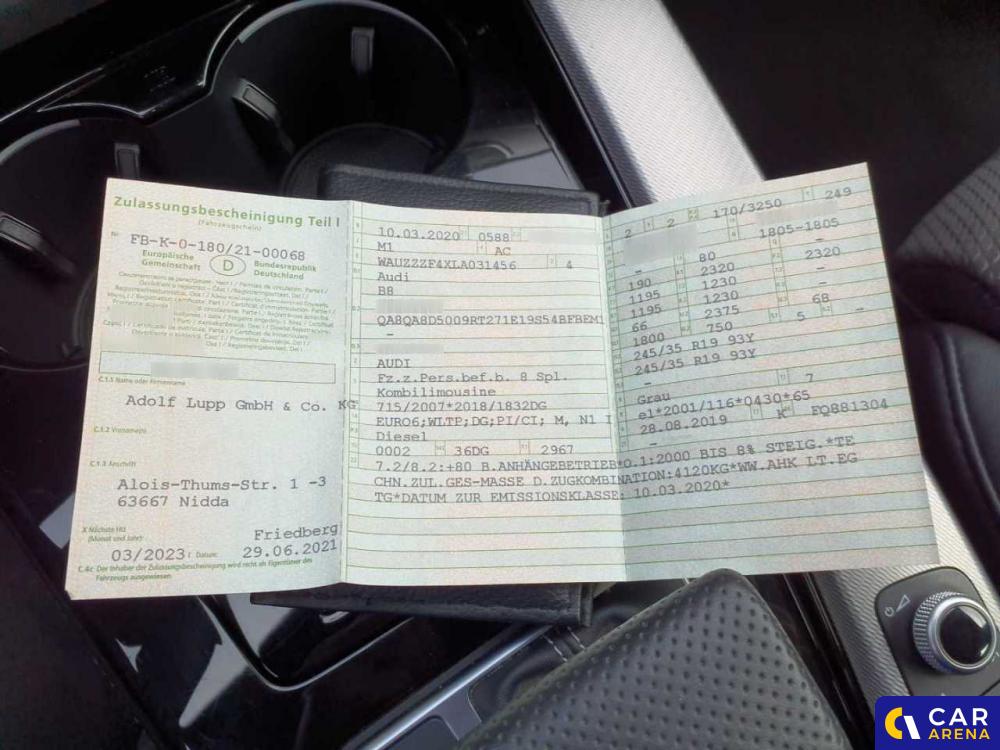 Zulassungsbescheinigung Teil I
(Fahrzeugschein)
Nr. FB-K-0-180/21-00068
Europäische Gemeinschaft
D
Bundesrepublik Deutschland
C.1.1 Name oder Firmenname
Adolf Lupp GmbH & Co. KG
C.1.2 Vorname(n)
C.1.3 Anschrift
Alois-Thums-Str. 1 -3
63667 Nidda
X Nächste HU
(Monat und Jahr)
Friedberg
03/2023 Datum: 29.06.2021
C.4c Der Inhaber der Zulassungsbescheinigung wird nicht als Eigentümer des
Fahrzeugs ausgewiesen.
10.03.2020 0588
M1 AC
WAUZZZF4XLA031456 4
Audi
B8
QA8QA8D5009RT271E19S54BFBEM1
-
AUDI
Fz.z.Pers.bef.b. 8 Spl.
Kombilimousine
715/2007*2018/1832DG
EURO6;WLTP;DG;PI/CI; M, N1 I
Diesel
0002 36DG 2967
7.2/8.2:+80 B.ANHÄNGEBETRIEB*O.1:2000 BIS 8% STEIG.*TE
CHN.ZUL.GES-MASSE D.ZUGKOMBINATION:4120KG*WW.AHK LT.EG
TG*DATUM ZUR EMISSIONSKLASSE: 10.03.2020*
2 2 170/3250 249
1805-1805
- 80 -
190 2320 2320
1195 1230 -
1195 1230 -
66 2375 68
1800 750 5 -
245/35 R19 93Y
245/35 R19 93Y
-
Grau 7
e1*2001/116*0430*65
28.08.2019 K FQ881304
-
CAR
ARENA